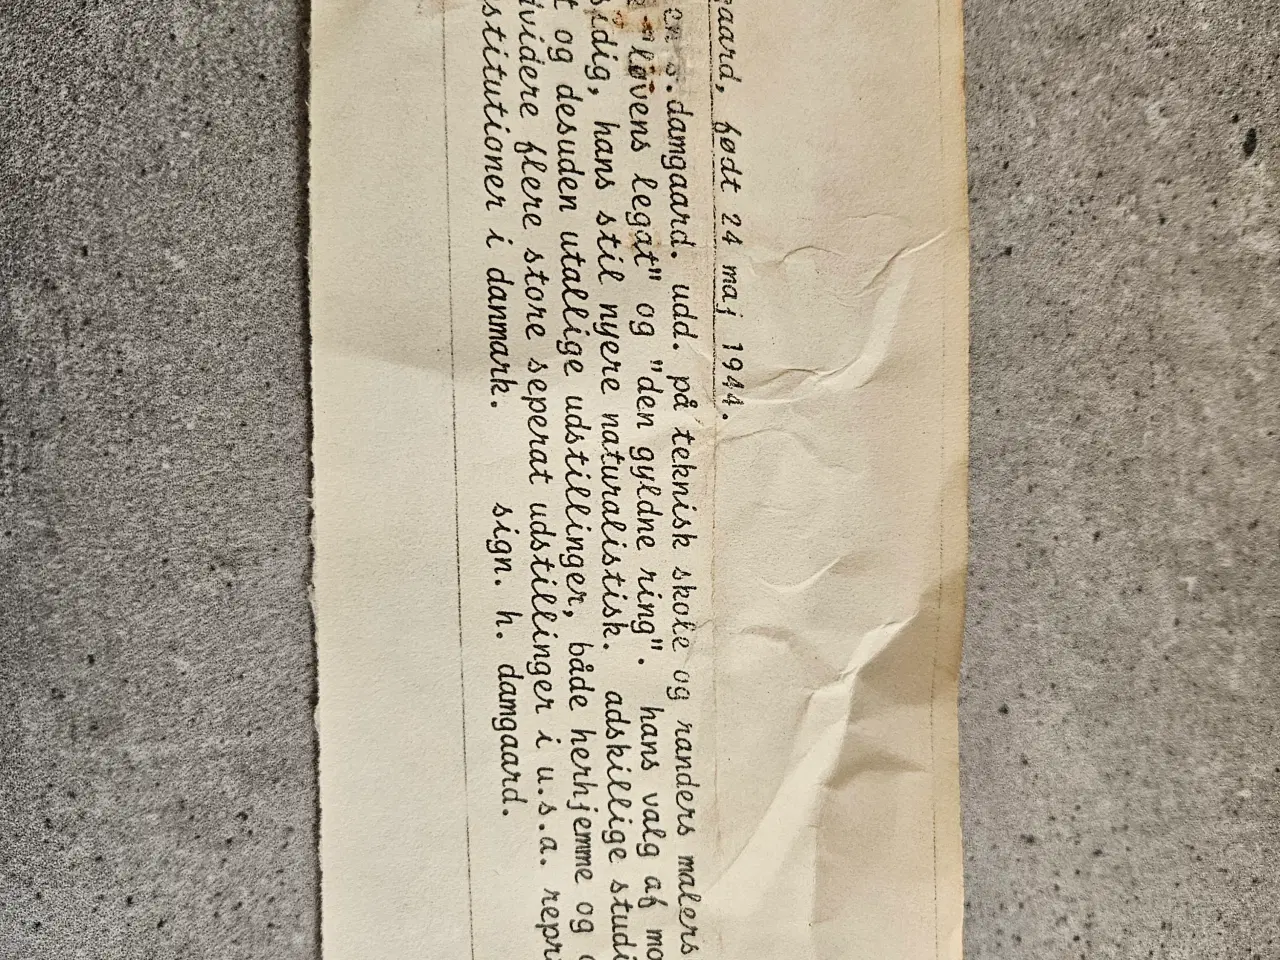 gaard, født 24 maj 1944.
en s. damgaard. udd. på teknisk skole og randers malers
løvens legat" og "den gyldne ring". hans valg af mo
sidig, hans stil nyere naturalistisk. adskillige studi
t og desuden utallige udstillinger, både herhjemme og
ividere flere store seperat udstillinger i u.s.a. repr
stitutioner i danmark. sign. h. damgaard.